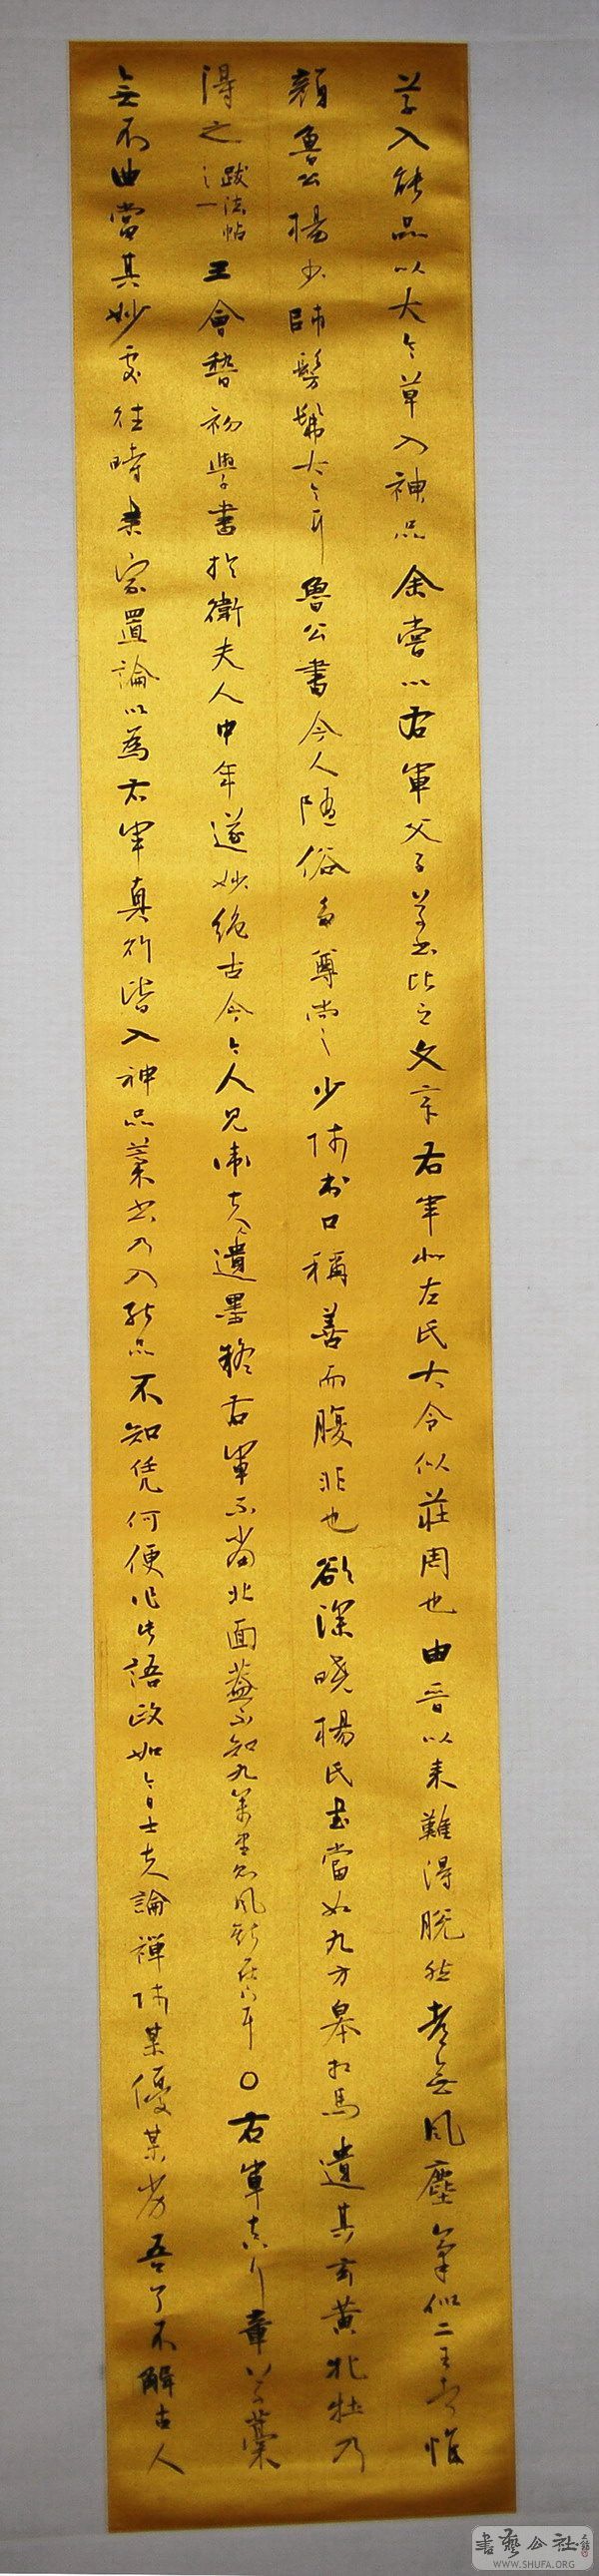 草入能品以大令草入神品余嘗以右軍父子草書比之文章右軍似左氏大令似莊周也由晉以來難得脫然都無風塵氣似二王者惟
顏魯公楊少師髣髴大令耳魯公書今人隨俗多尊尚之少師書口稱善而腹非也欲深曉楊氏書當如九方皋相馬遺其玄黃牝牡乃
得之跋法帖之一王會稽初學書於衛夫人中年遂妙絕古今今人見衛夫人遺墨疑右軍不當北面蓋不知九萬里則風斯在下耳○右軍真行章草藁
無不曲當其妙處往時書家置論以為右軍真行皆入神品藁書乃入能品不知凭何便作此語政如今日士夫論禪師某優某劣吾了不解古人
書藝公社
WWW.SHUFA.ORG